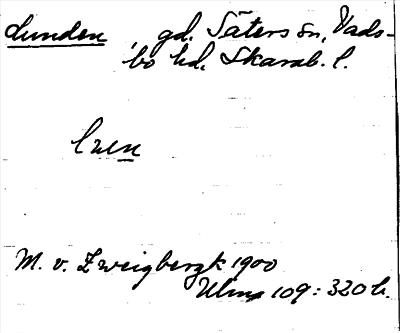 Lunden, gd. Säters sn, Vads-
bo hd. Skarab. l.
M. v. Zweigbergk 1900
Ulma 109:320 b.